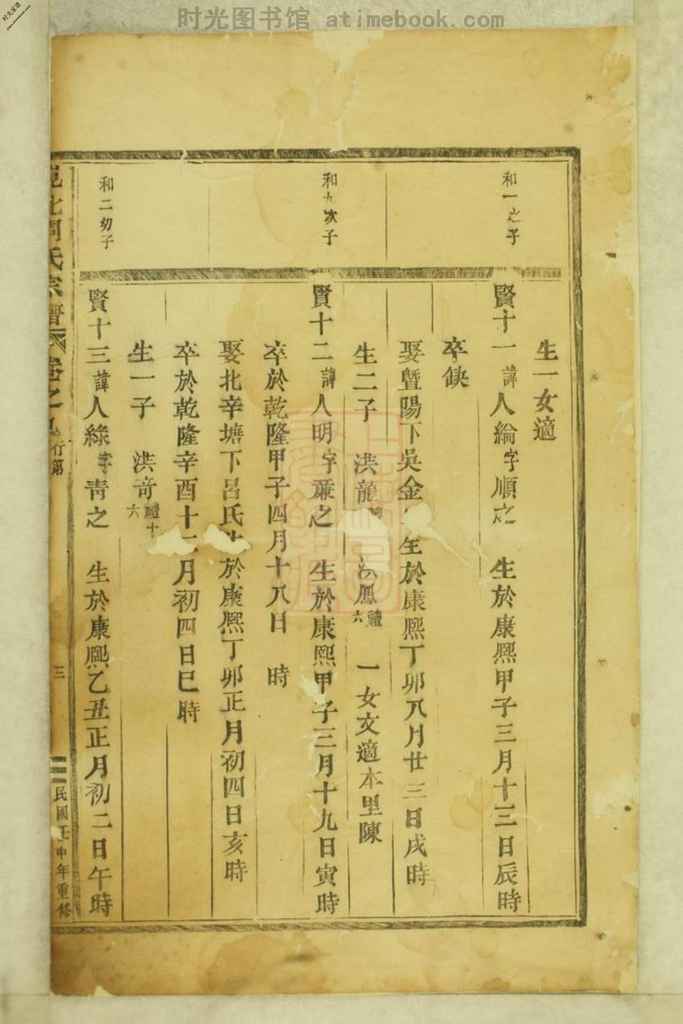 时光图书馆 atimebook.com
和一之子
和九次子
和二幼子
生一女適
賢十一諱人綸字順之 生於康熙甲子三月十三日辰時
卒缺
娶暨陽下吳金 生於康熙丁卯八月廿三日戌時
生二子 洪龍 鳳禮六 一女文適本里陳
賢十二諱人明字 之 生於康熙甲子三月十九日寅時
卒於乾隆甲子四月十八日 時
娶北辛塘下呂氏 於康熙丁卯正月初四日亥時
卒於乾隆辛酉十二月初四日巳時
生一子 洪奇禮十六
賢十三諱人綠字青之 生於康熙乙丑正月初二日午時
氏宗譜 卷之 行第
三
民國壬申年重修